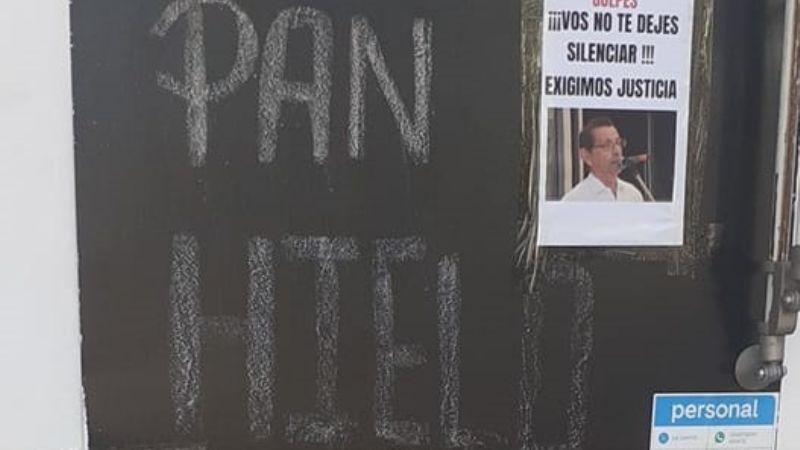 PAN
HIELO
GOLPES
¡¡¡VOS NO TE DEJES
SILENCIAR !!!
EXIGIMOS JUSTICIA
personal